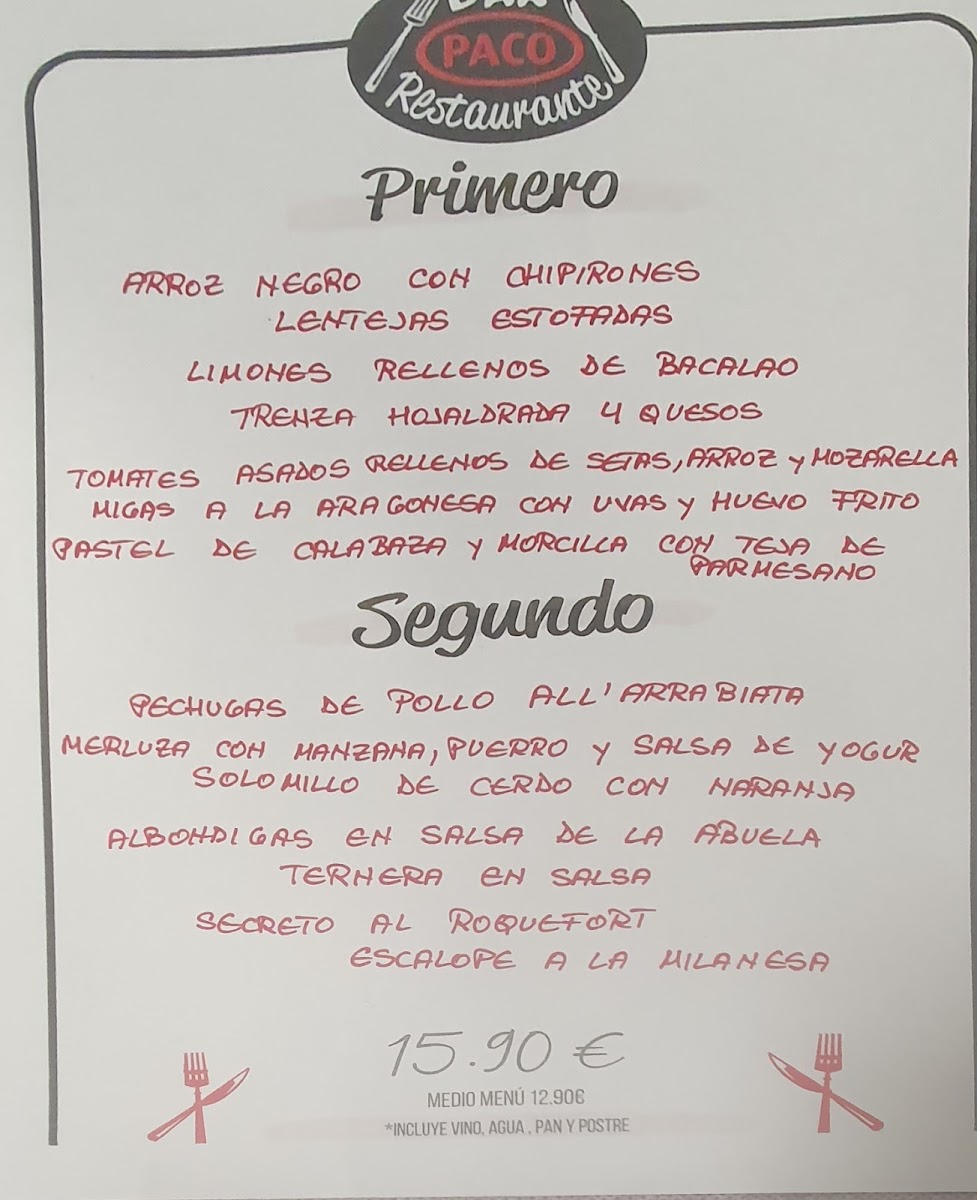 BAR
PACO
Restaurante
Primero
ARROZ NEGRO CON CHIPIRONES
LENTEJAS ESTOFADAS
LIMONES RELLENOS DE BACALAO
TRENZA HOJALDRADA 4 QUESOS
TOMATES ASADOS RELLENOS DE SETAS, ARROZ Y MOZARELLA
MIGAS A LA ARAGONESA CON UVAS Y HUEVO FRITO
PASTEL DE CALABAZA Y MORCILLA CON TEJA DE
PARMESANO
Segundo
PECHUGAS DE POLLO ALL'ARRABIATA
MERLUZA CON MANZANA, PUERRO Y SALSA DE YOGUR
SOLOMILLO DE CERDO CON NARANJA
ALBONDIGAS EN SALSA DE LA ABUELA
TERNERA EN SALSA
SECRETO AL ROQUEFORT
ESCALOPE A LA MILANESA
15.90 €
MEDIO MENÚ 12.90€
*INCLUYE VINO, AGUA , PAN Y POSTRE